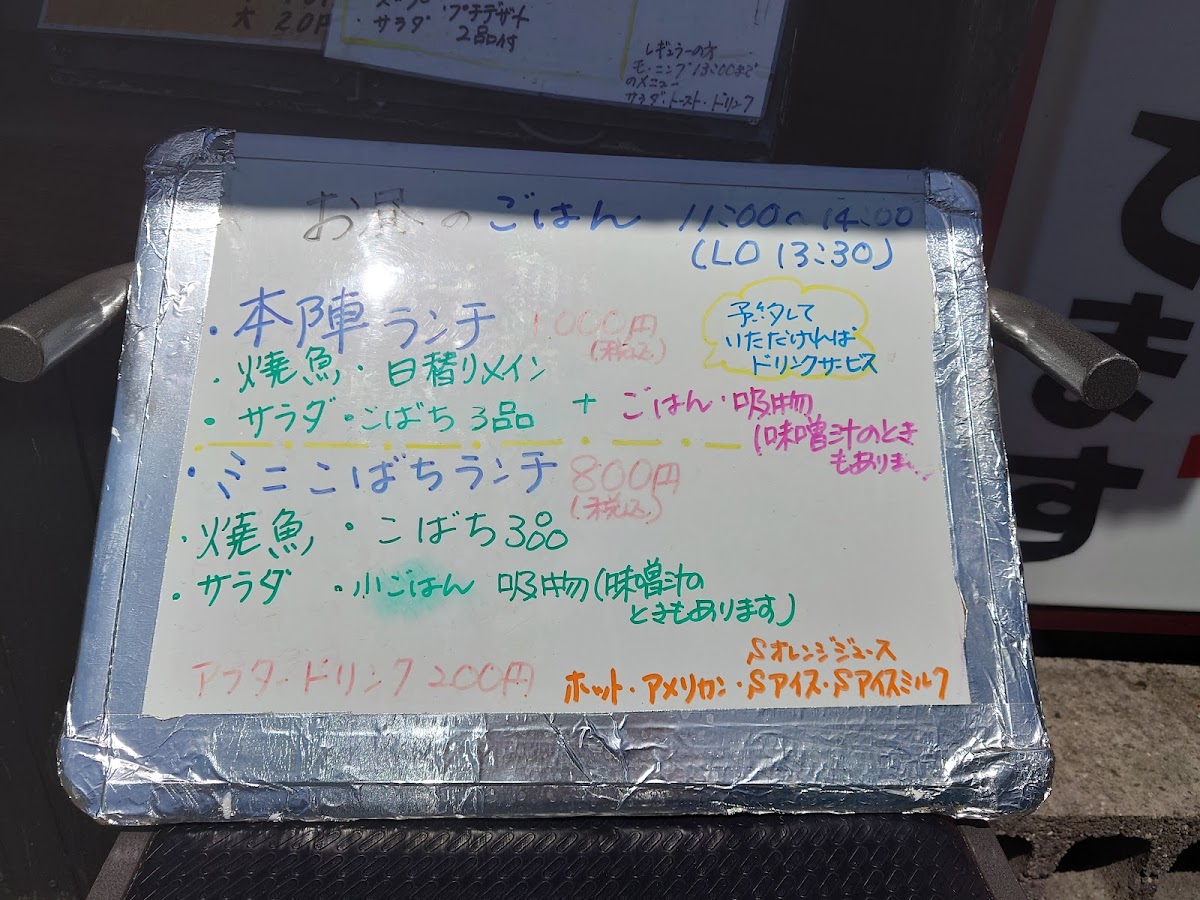 大 20円
・サラダ ・プチデザート
2品付
レギュラーの方
モーニング13:00まで
のメニュー
サラダ・トースト・ドリンク
お昼のごはん 11:00〜14:00
(LO 13:30)
・本陣ランチ 1000円
(税込)
予約して
いただければ
ドリンクサービス
・焼魚・日替りメイン
・サラダ・こばち3品 + ごはん・吸物
(味噌汁のとき
もありま
・ミニこばちランチ 800円
(税込)
・焼魚 ・こばち3品
・サラダ ・小ごはん 吸物(味噌汁の
ときもあります)
アフタードリンク200円
Sオレンジジュース
ホット・アメリカン・Sアイス・Sアイスミルク
てます